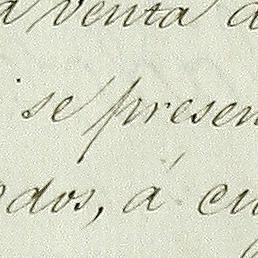 a venta d
se presen
dos, á cu